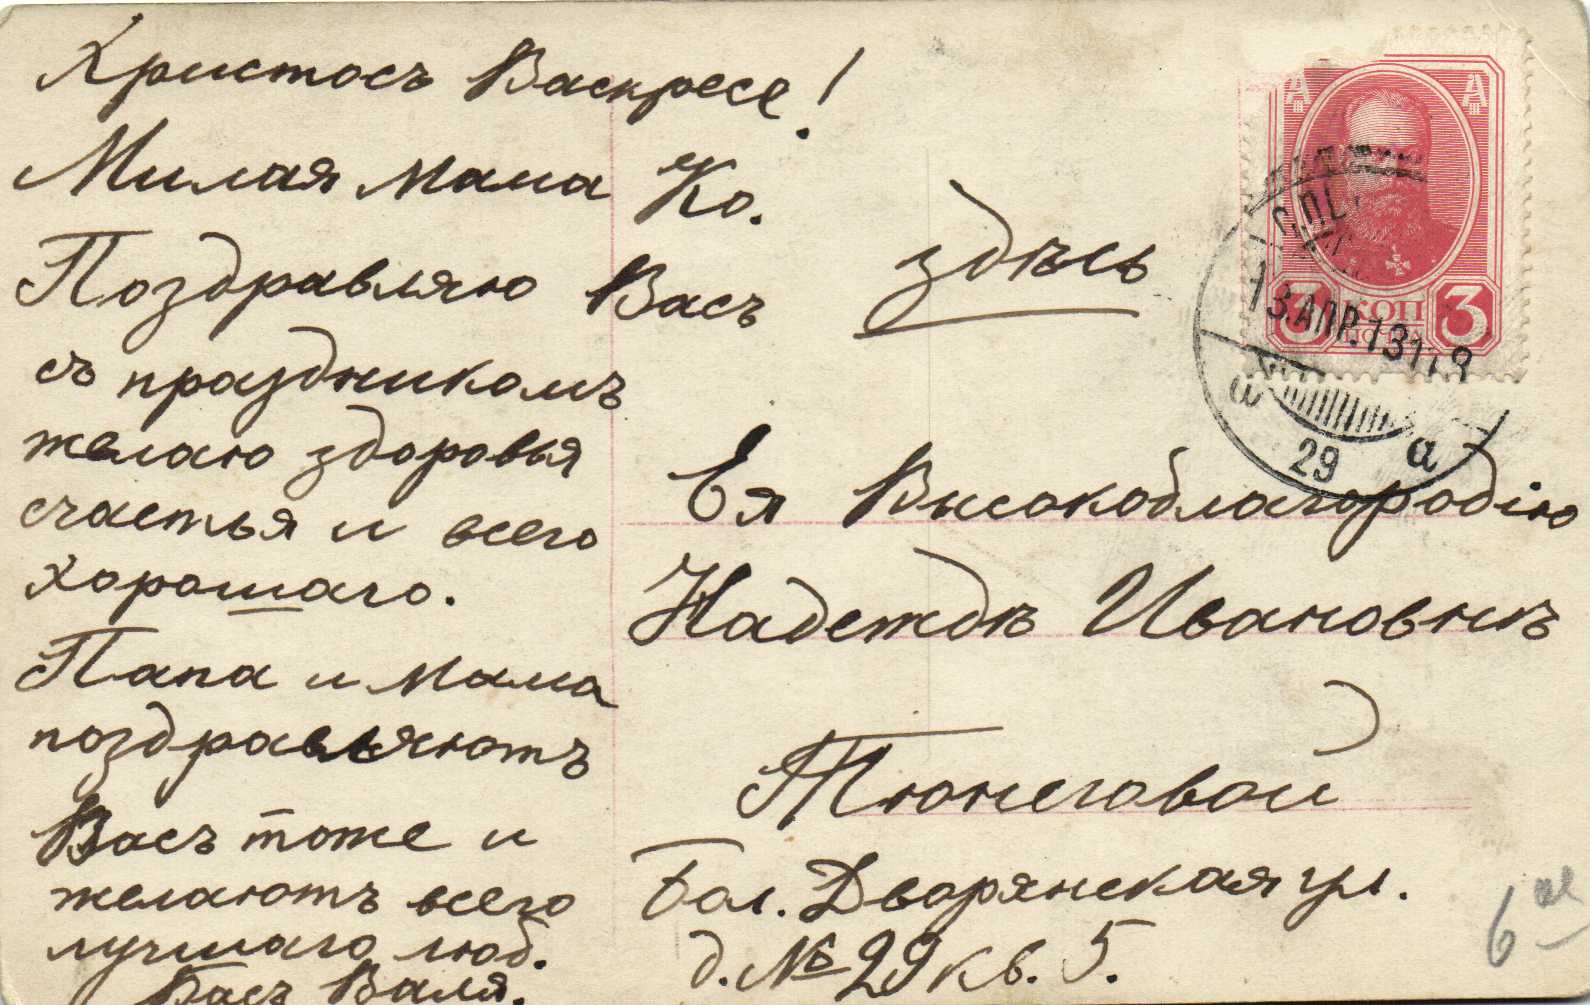 Христосъ Васкресе!
Милая мама Ко.
Поздравляю Васъ
съ праздникомъ
желаю здоровья
счастья и всего
хорошаго.
Папа и мама
поздравляютъ
Васъ тоже и
желаютъ всего
лучшаго люб.
Васъ Валя.
здѣсь
3 КОП 3
13.АПР.13
а а
29
Ея Высокоблагородію
Надеждѣ Ивановнѣ
Тюнеговой
Бол. Дворянская ул.
д. № 29 кв. 5.